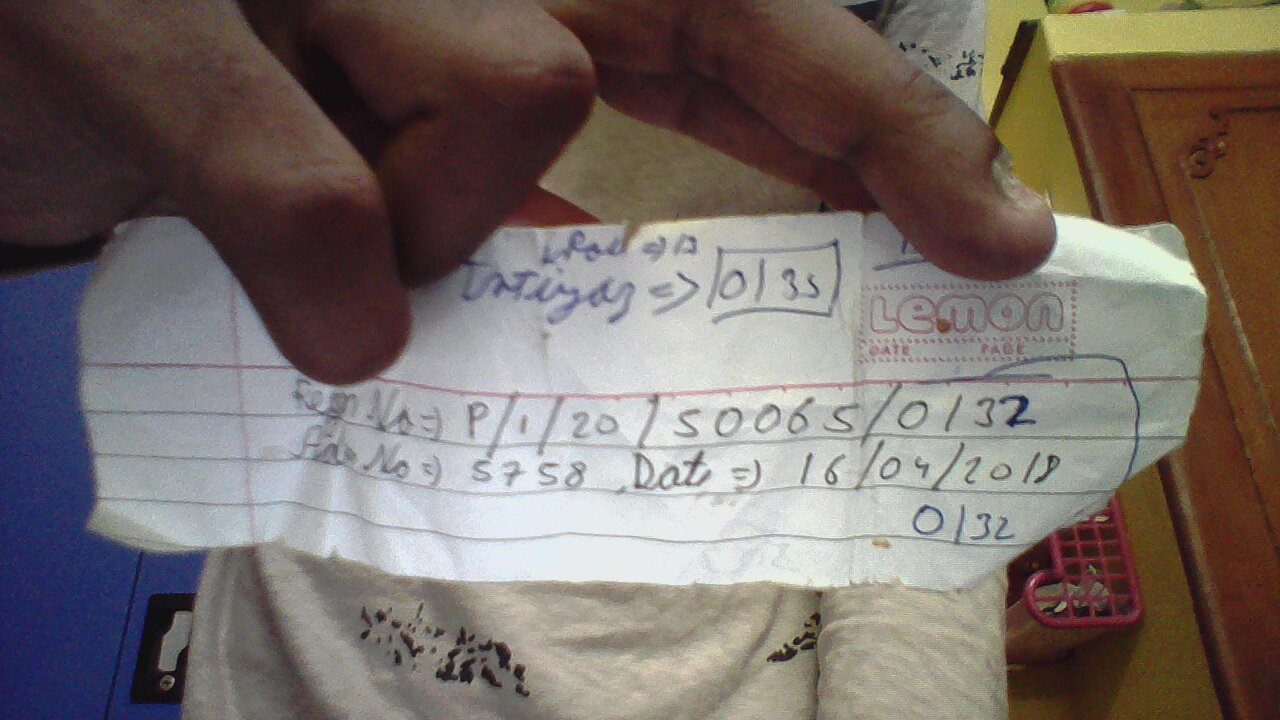 Intiyaz => 0135
Lemon
DATE PAGE
Regn No => P/1/20/50065/0132
Adm No => 5758 Date => 16/04/2018
0132